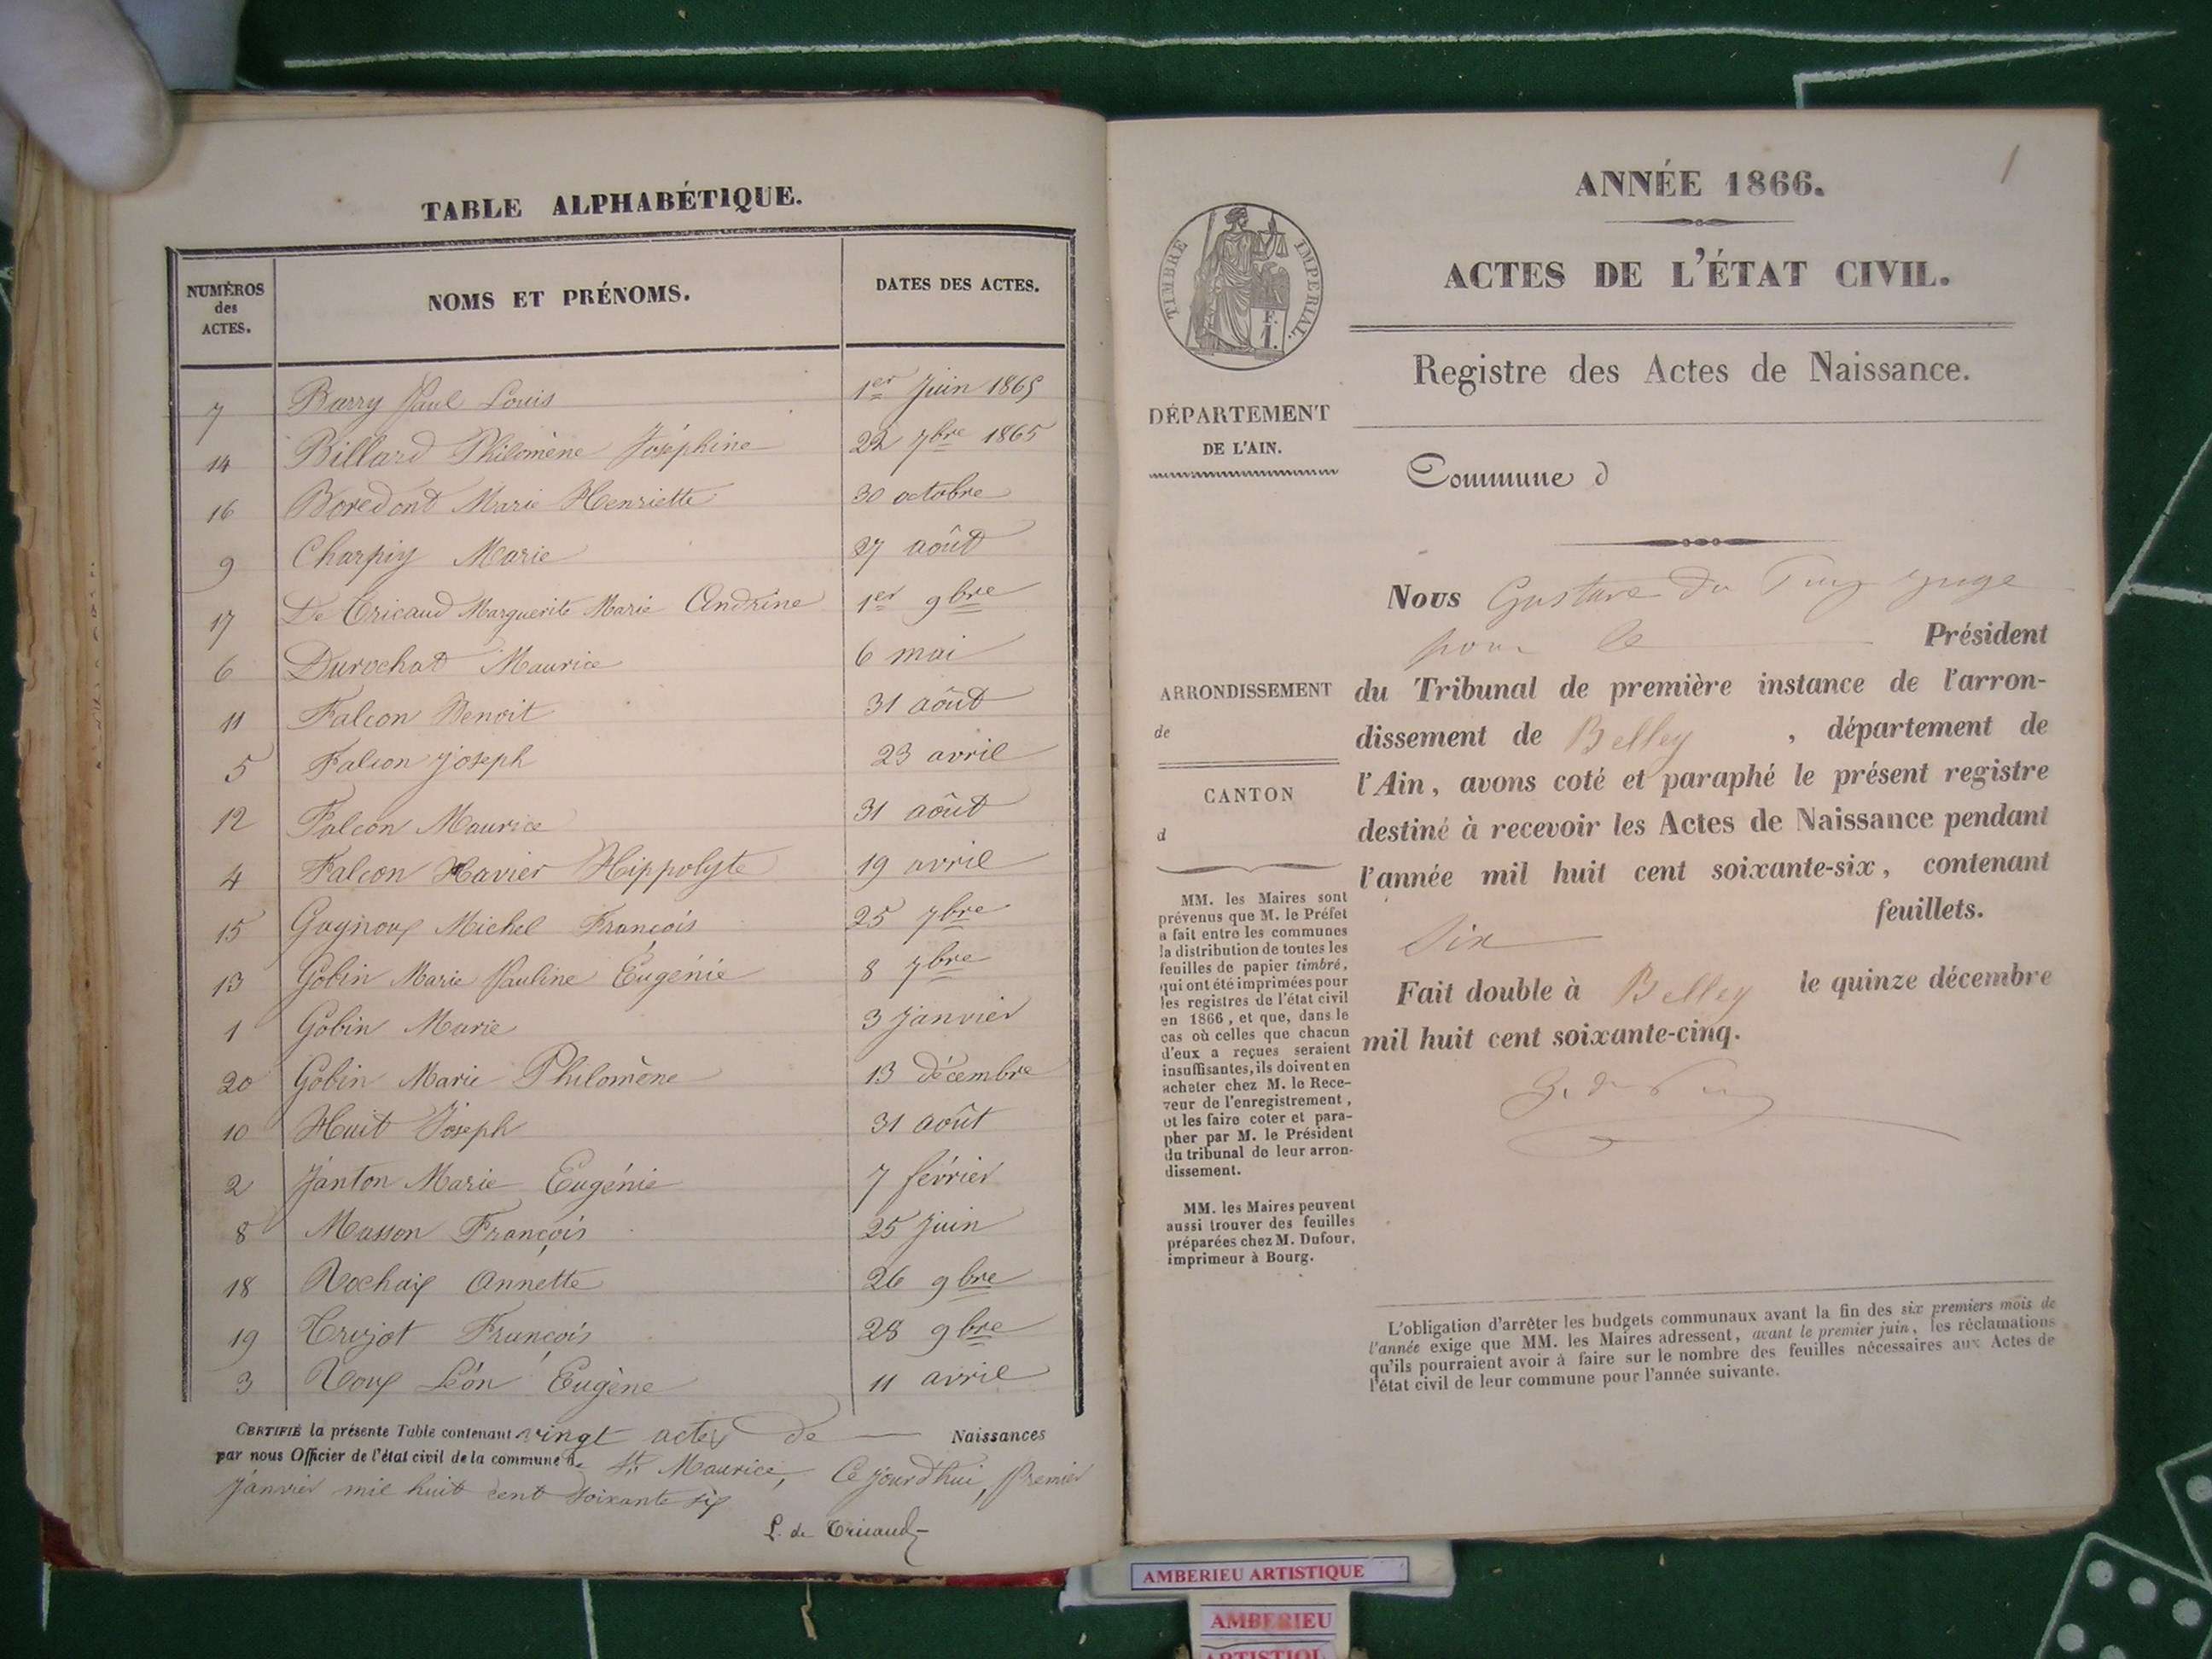 TABLE ALPHABÉTIQUE.
NUMÉROS des ACTES.
NOMS ET PRÉNOMS.
DATES DES ACTES.
7 Barry Paul Louis 1er Juin 1865
14 Billard Philomène Joséphine 22 7bre 1865
16 Boredont Marie Henriette 30 octobre
9 Charpiy Marie 27 août
17 De Tricaud Marguerite Marie Andrine 1er 9bre
6 Durochat Maurice 6 mai
11 Falcon Benoit 31 août
5 Falcon Joseph 23 avril
12 Falcon Maurice 31 août
4 Falcon Xavier Hippolyte 19 avril
15 Gagnoux Michel François 25 7bre
13 Gobin Marie Pauline Eugénie 8 7bre
1 Gobin Marie 3 Janvier
20 Gobin Marie Philomène 13 décembre
10 Huit Joseph 31 août
2 Janton Marie Eugénie 7 février
8 Masson François 25 Juin
18 Rochaix Annette 26 9bre
19 François 28 9bre
3 Roux Léon Eugène 11 avril
CERTIFIÉ la présente Table contenant vingt actes de Naissances
par nous Officier de l'état civil de la commune de St Maurice, Ce jourd'hui, Premier
Janvier mil huit cent soixante six
L. de Tricaud
1
ANNÉE 1866.
ACTES DE L'ÉTAT CIVIL.
TIMBRE IMPERIAL.
F.
1.
Registre des Actes de Naissance.
DÉPARTEMENT
DE L'AIN.
Commune d
ARRONDISSEMENT
de
CANTON
d
MM. les Maires sont
prévenus que M. le Préfet
a fait entre les communes
la distribution de toutes les
feuilles de papier timbré,
qui ont été imprimées pour
les registres de l'état civil
en 1866, et que, dans le
cas où celles que chacun
d'eux a reçues seraient
insuffisantes, ils doivent en
acheter chez M. le Rece-
veur de l'enregistrement,
et les faire coter et para-
pher par M. le Président
du tribunal de leur arron-
dissement.
MM. les Maires peuvent
aussi trouver des feuilles
préparées chez M. Dufour,
imprimeur à Bourg.
Nous Gustave Du Puy juge
pour le Président
du Tribunal de première instance de l'arron-
dissement de Belley , département de
l'Ain, avons coté et paraphé le présent registre
destiné à recevoir les Actes de Naissance pendant
l'année mil huit cent soixante-six, contenant
Six feuillets.
Fait double à Belley le quinze décembre
mil huit cent soixante-cinq.
G. du Puy
L'obligation d'arrêter les budgets communaux avant la fin des six premiers mois de
l'année exige que MM. les Maires adressent, avant le premier juin, les réclamations
qu'ils pourraient avoir à faire sur le nombre des feuilles nécessaires aux Actes de
l'état civil de leur commune pour l'année suivante.
AMBERIEU ARTISTIQUE
AMBERIEU
ARTISTIQU